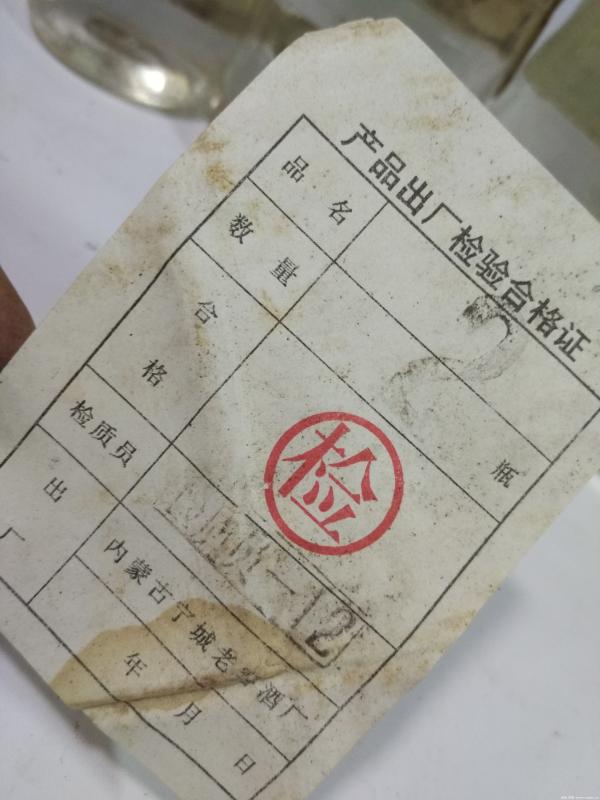 产品出厂检验合格证
品名
数量 瓶
合格 检
检质员
出厂 内蒙古宁城老窖酒厂
年月日